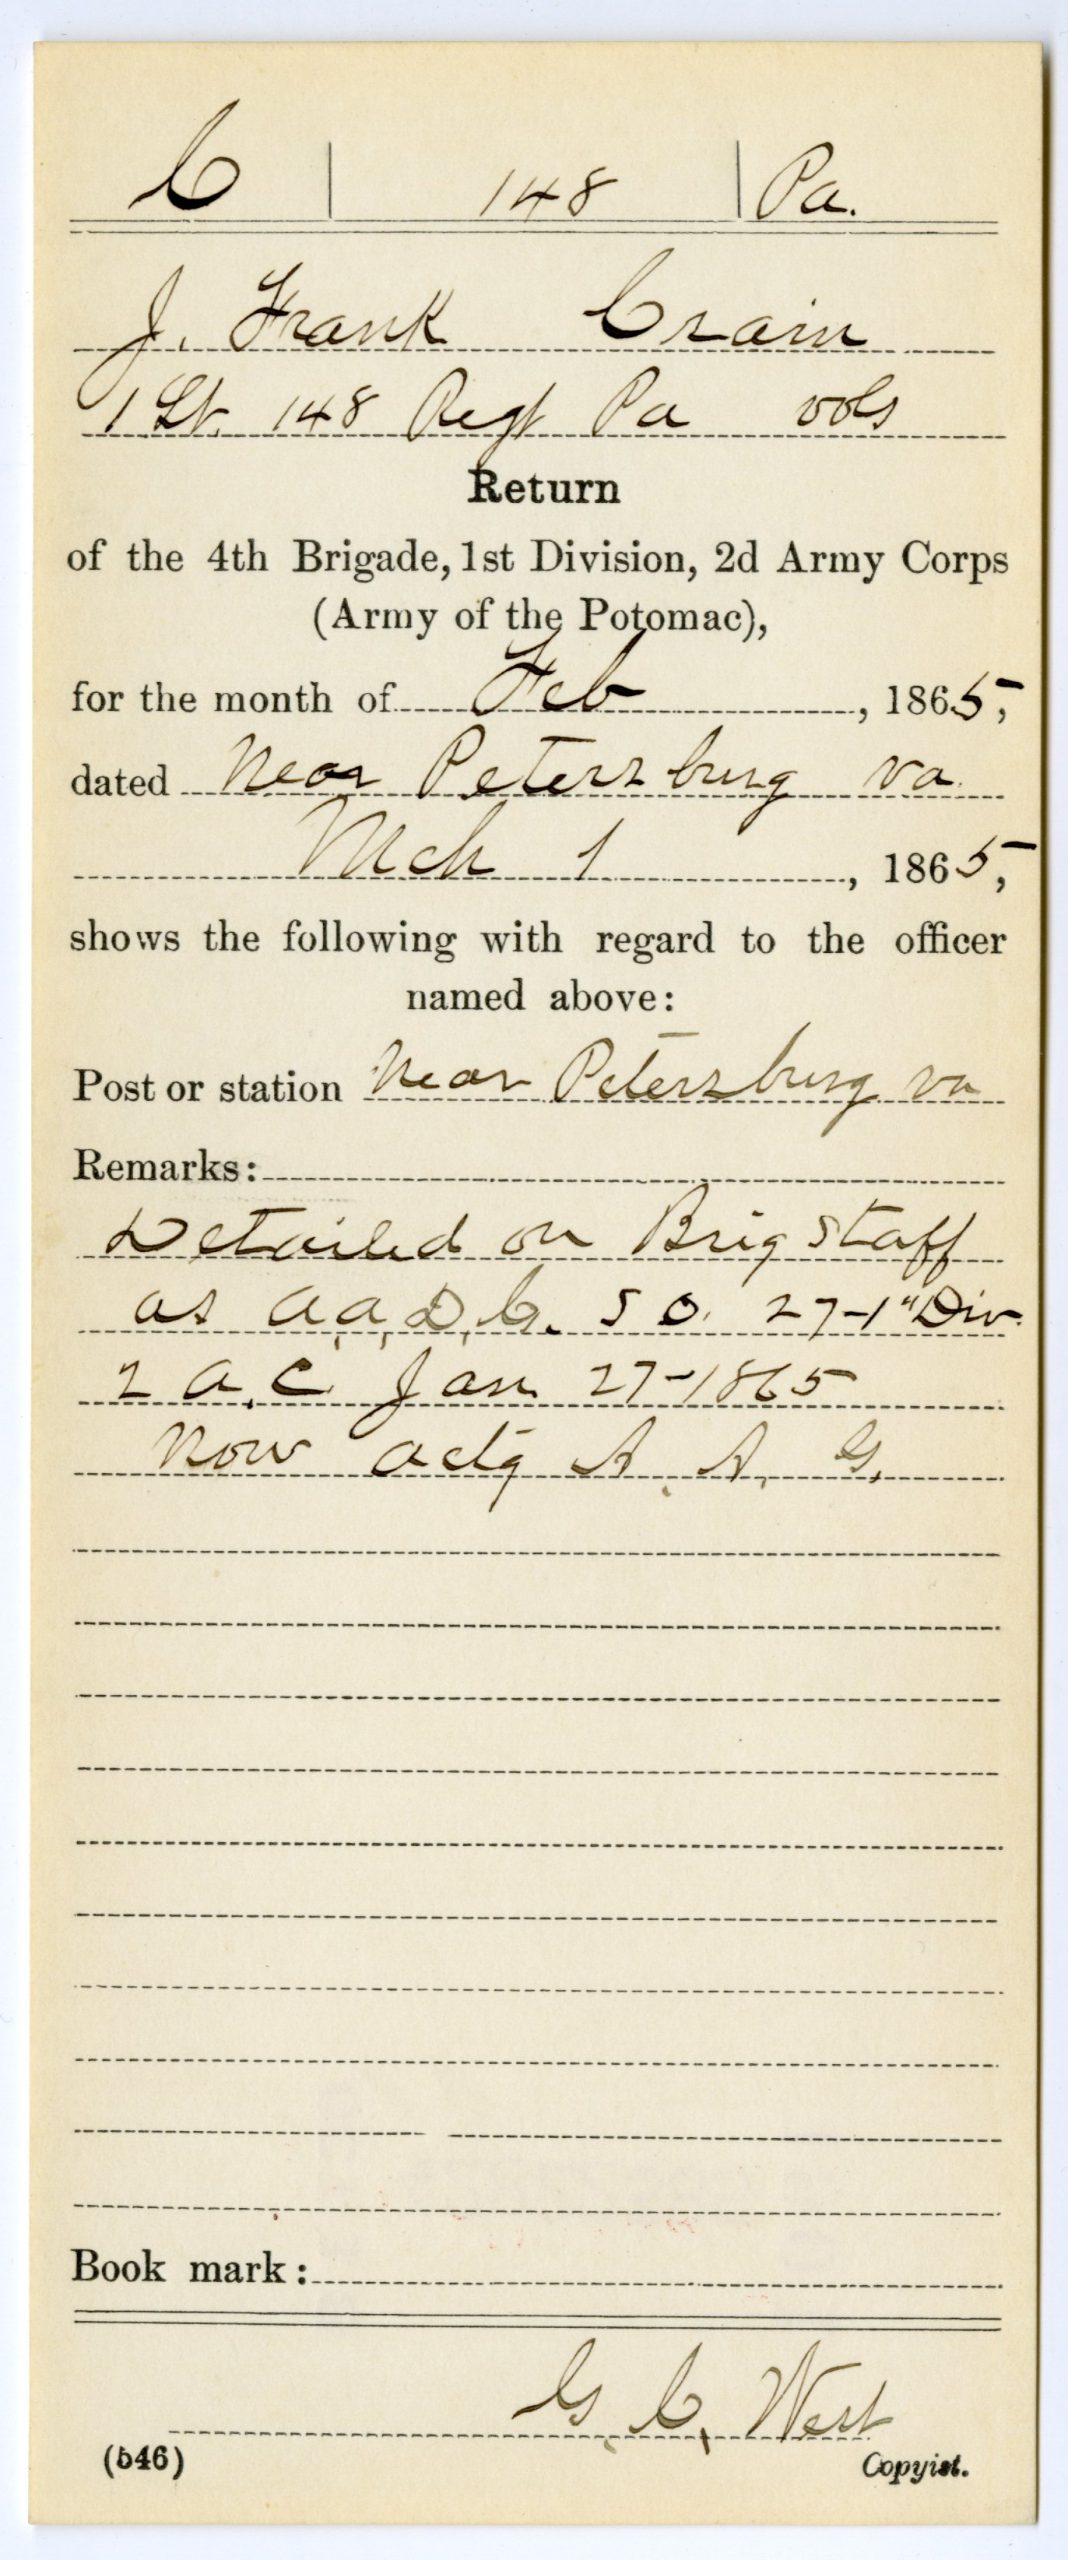 C | 148 | Pa.
J. Frank Crain
1 Lt. 148 Regt Pa vols
Return
of the 4th Brigade, 1st Division, 2d Army Corps
(Army of the Potomac),
for the month of Feb, 1865,
dated Near Petersburg Va.
Mch 1, 1865,
shows the following with regard to the officer
named above:
Post or station Near Petersburg Va
Remarks:
Detailed on Brig Staff
as a.a.D.C. S O. 27-1" Div.
2 A.C. Jan. 27-1865
Now actg A. A. G.
Book mark:
G. C. West
(546) Copyist.